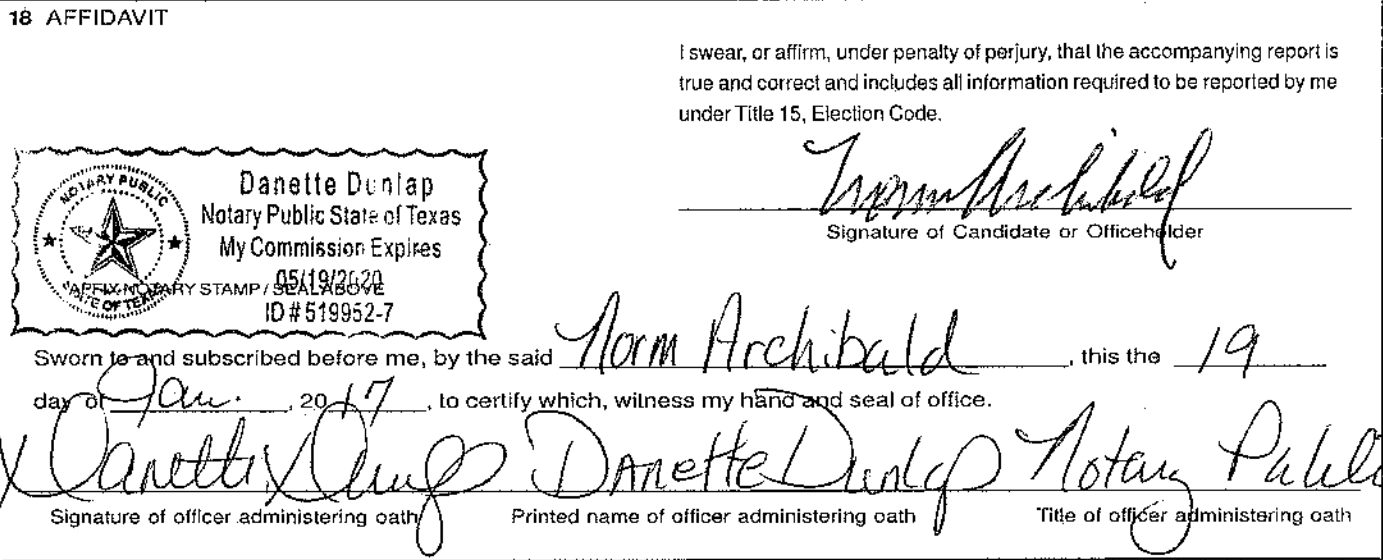 18 AFFIDAVIT
I swear, or affirm, under penalty of perjury, that the accompanying report is
true and correct and includes all information required to be reported by me
under Title 15, Election Code.
Norm Archibald
Signature of Candidate or Officeholder
NOTARY PUBLIC
STATE OF TEXAS
Danette Dunlap
Notary Public State of Texas
My Commission Expires
05/19/2020
ID # 519952-7
AFFIX NOTARY STAMP / SEAL ABOVE
Sworn to and subscribed before me, by the said Norm Archibald, this the 19
day of Jan., 2017, to certify which, witness my hand and seal of office.
Danette Dunlap DAnette Dunlap Notary Public
Signature of officer administering oath Printed name of officer administering oath Title of officer administering oath